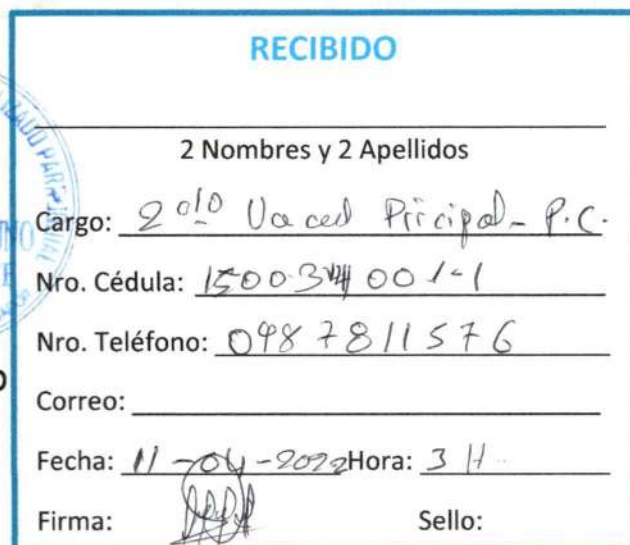 RECIBIDO
2 Nombres y 2 Apellidos
Cargo: 2do Principal - P.C.
Nro. Cédula:
Nro. Teléfono: 0987811576
Correo:
Fecha: 11-04-2022 Hora: 3 H
Firma: Sello: